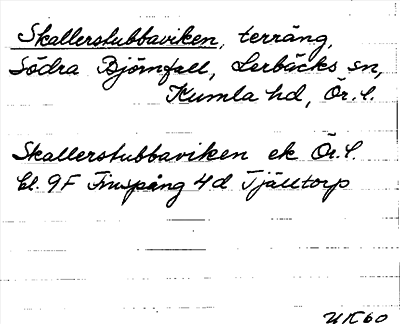 Skallerstubbaviken, terräng,
Södra Björnfall, Lerbäcks sn,
Kumla hd, Ör. l.
Skallerstubbaviken ek Ör. l.
bl. 9F Finspång 4d Tjälltorp
UK60